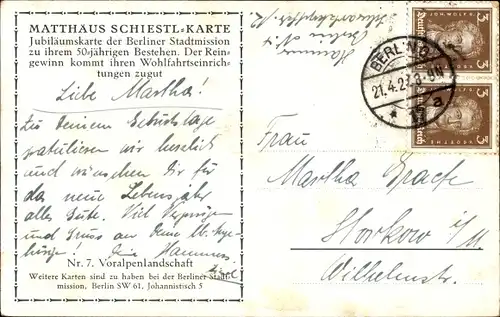 MATTHÄUS SCHIESTL-KARTE
Jubiläumskarte der Berliner Stadtmission
zu ihrem 50jährigen Bestehen. Der Rein-
gewinn kommt ihren Wohlfahrtseinrich-
tungen zugut
Liebe Martha!
Zu Deinem Geburtstage
gratulieren wir herzlich
und wünschen Dir für
das neue Lebensjahr
alles Gute. Viel Vergnügen
und Gruss an Deine
Nr. 7. Voralpenlandschaft
Weitere Karten sind zu haben bei der Berliner Stadt-
mission, Berlin SW 61, Johannistisch 5
Berlin N. 4
BERLIN
21.4.27.
a
3 3
3 3
Frau
Martha
i/M
Wilhelmstr.